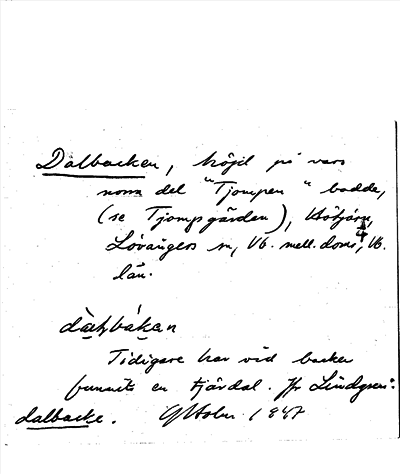 Dalbacken, höjd på vars
norra del "Tjompen" bodde,
(se Tjompgården),
Lövångers sn, Vb. mell. doms, Vb.
län.
Tidigare har vid backen
funnits en tjärdal. Jfr Lindgren:
dalbacke. GHolm 1947